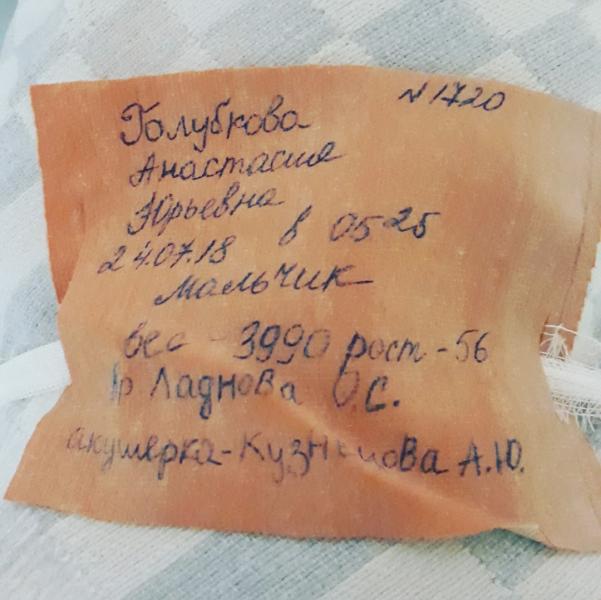 N 1720
Голубкова
Анастасия
Юрьевна
24.07.18 в 05-25
мальчик
вес - 3990 рост - 56
Вр Ладнова О.С.
акушерка - Кузнецова А.Ю.